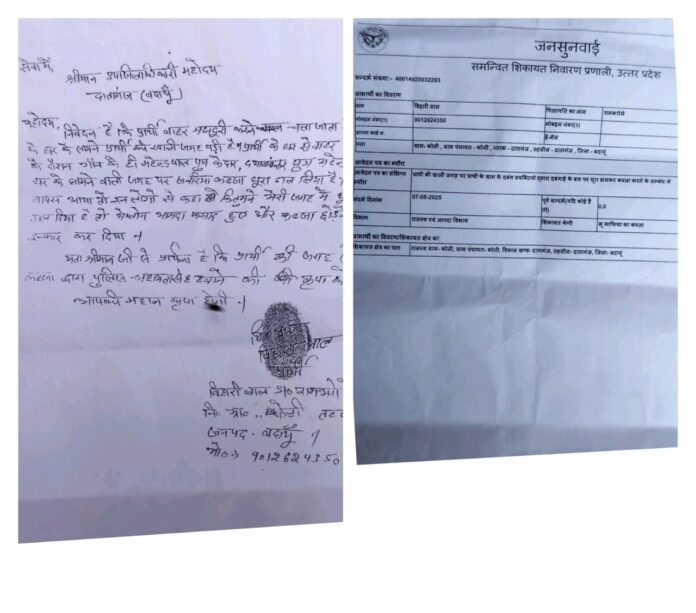 सेवा में,
श्रीमान उपजिलाधिकारी महोदय
दातागंज (बदायूँ)
महोदय,
निवेदन है कि प्रार्थी बाहर मजदूरी करने चला जाता
के घर के सामने प्रार्थी की खाली जगह पड़ी है। प्रार्थी के घर से बाहर
के दौरान गाँव के ही महेन्द्रपाल पुत्र केदार, पुत्र
घर के सामने वाली जगह पर कब्जा घूरा डाल लिया है।
वापस आया तो उन लोगों से कहा कि मेरी जगह में
डाल दिया है तो आमादा फसाद हुए और कब्जा
इन्कार कर दिया।
अतः श्रीमान जी से प्रार्थना है कि प्रार्थी की जगह
द्वारा पुलिस हटवाने की कृपा
आपकी महान कृपा होगी।
बिहारी लाल
प्रार्थी
बिहारी लाल S/o रामभरो
नि० ग्रा० कोली
जनपद - बदायूँ।
मो०नं० 9012624350
जनसुनवाई
समन्वित शिकायत निवारण प्रणाली, उत्तर प्रदेश
सन्दर्भ संख्या:- 40014925032283
लाभार्थी का विवरण
नाम बिहारी लाल पिता/पति का नाम रामभरोसे
मोबाइल नंबर(1) 9012624350 मोबाइल नंबर(2)
आधार कार्ड न. ई-मेल
पता ग्राम- कोली , ग्राम पंचायत - कोली , ब्लाक - दातागंज , तहसील - दातागंज , जिला - बदायू
आवेदन पत्र का ब्यौरा
आवेदन पत्र का संक्षिप्त ब्यौरा प्रार्थी की खाली जगह पर प्रार्थी के ग्राम के दबंग व्यक्तियों द्वारा दबंगई के बल पर घूरा डालकर कब्जा करने के सम्बन्ध में
संदर्भ दिनांक 07-06-2025 पूर्व सन्दर्भ(यदि कोई है तो) 0,0
विभाग राजस्व एवं आपदा विभाग शिकायत श्रेणी भू माफिया का कब्जा
लाभार्थी का विवरण/शिकायत क्षेत्र का
शिकायत क्षेत्र का पता राजस्व ग्राम- कोली, ग्राम पंचायत- कोली, विकास खण्ड- दातागंज, तहसील- दातागंज, जिला- बदायू